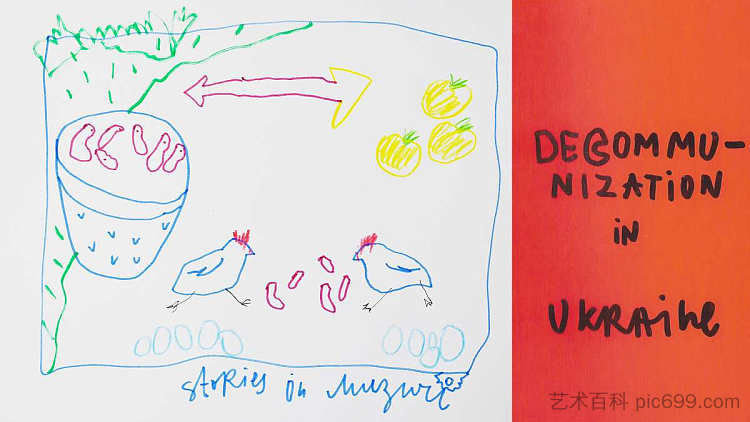 stories in Muzychi
DECOMMU-
NIZATION
iN
UKRAiNe
艺术百科 pic699.com